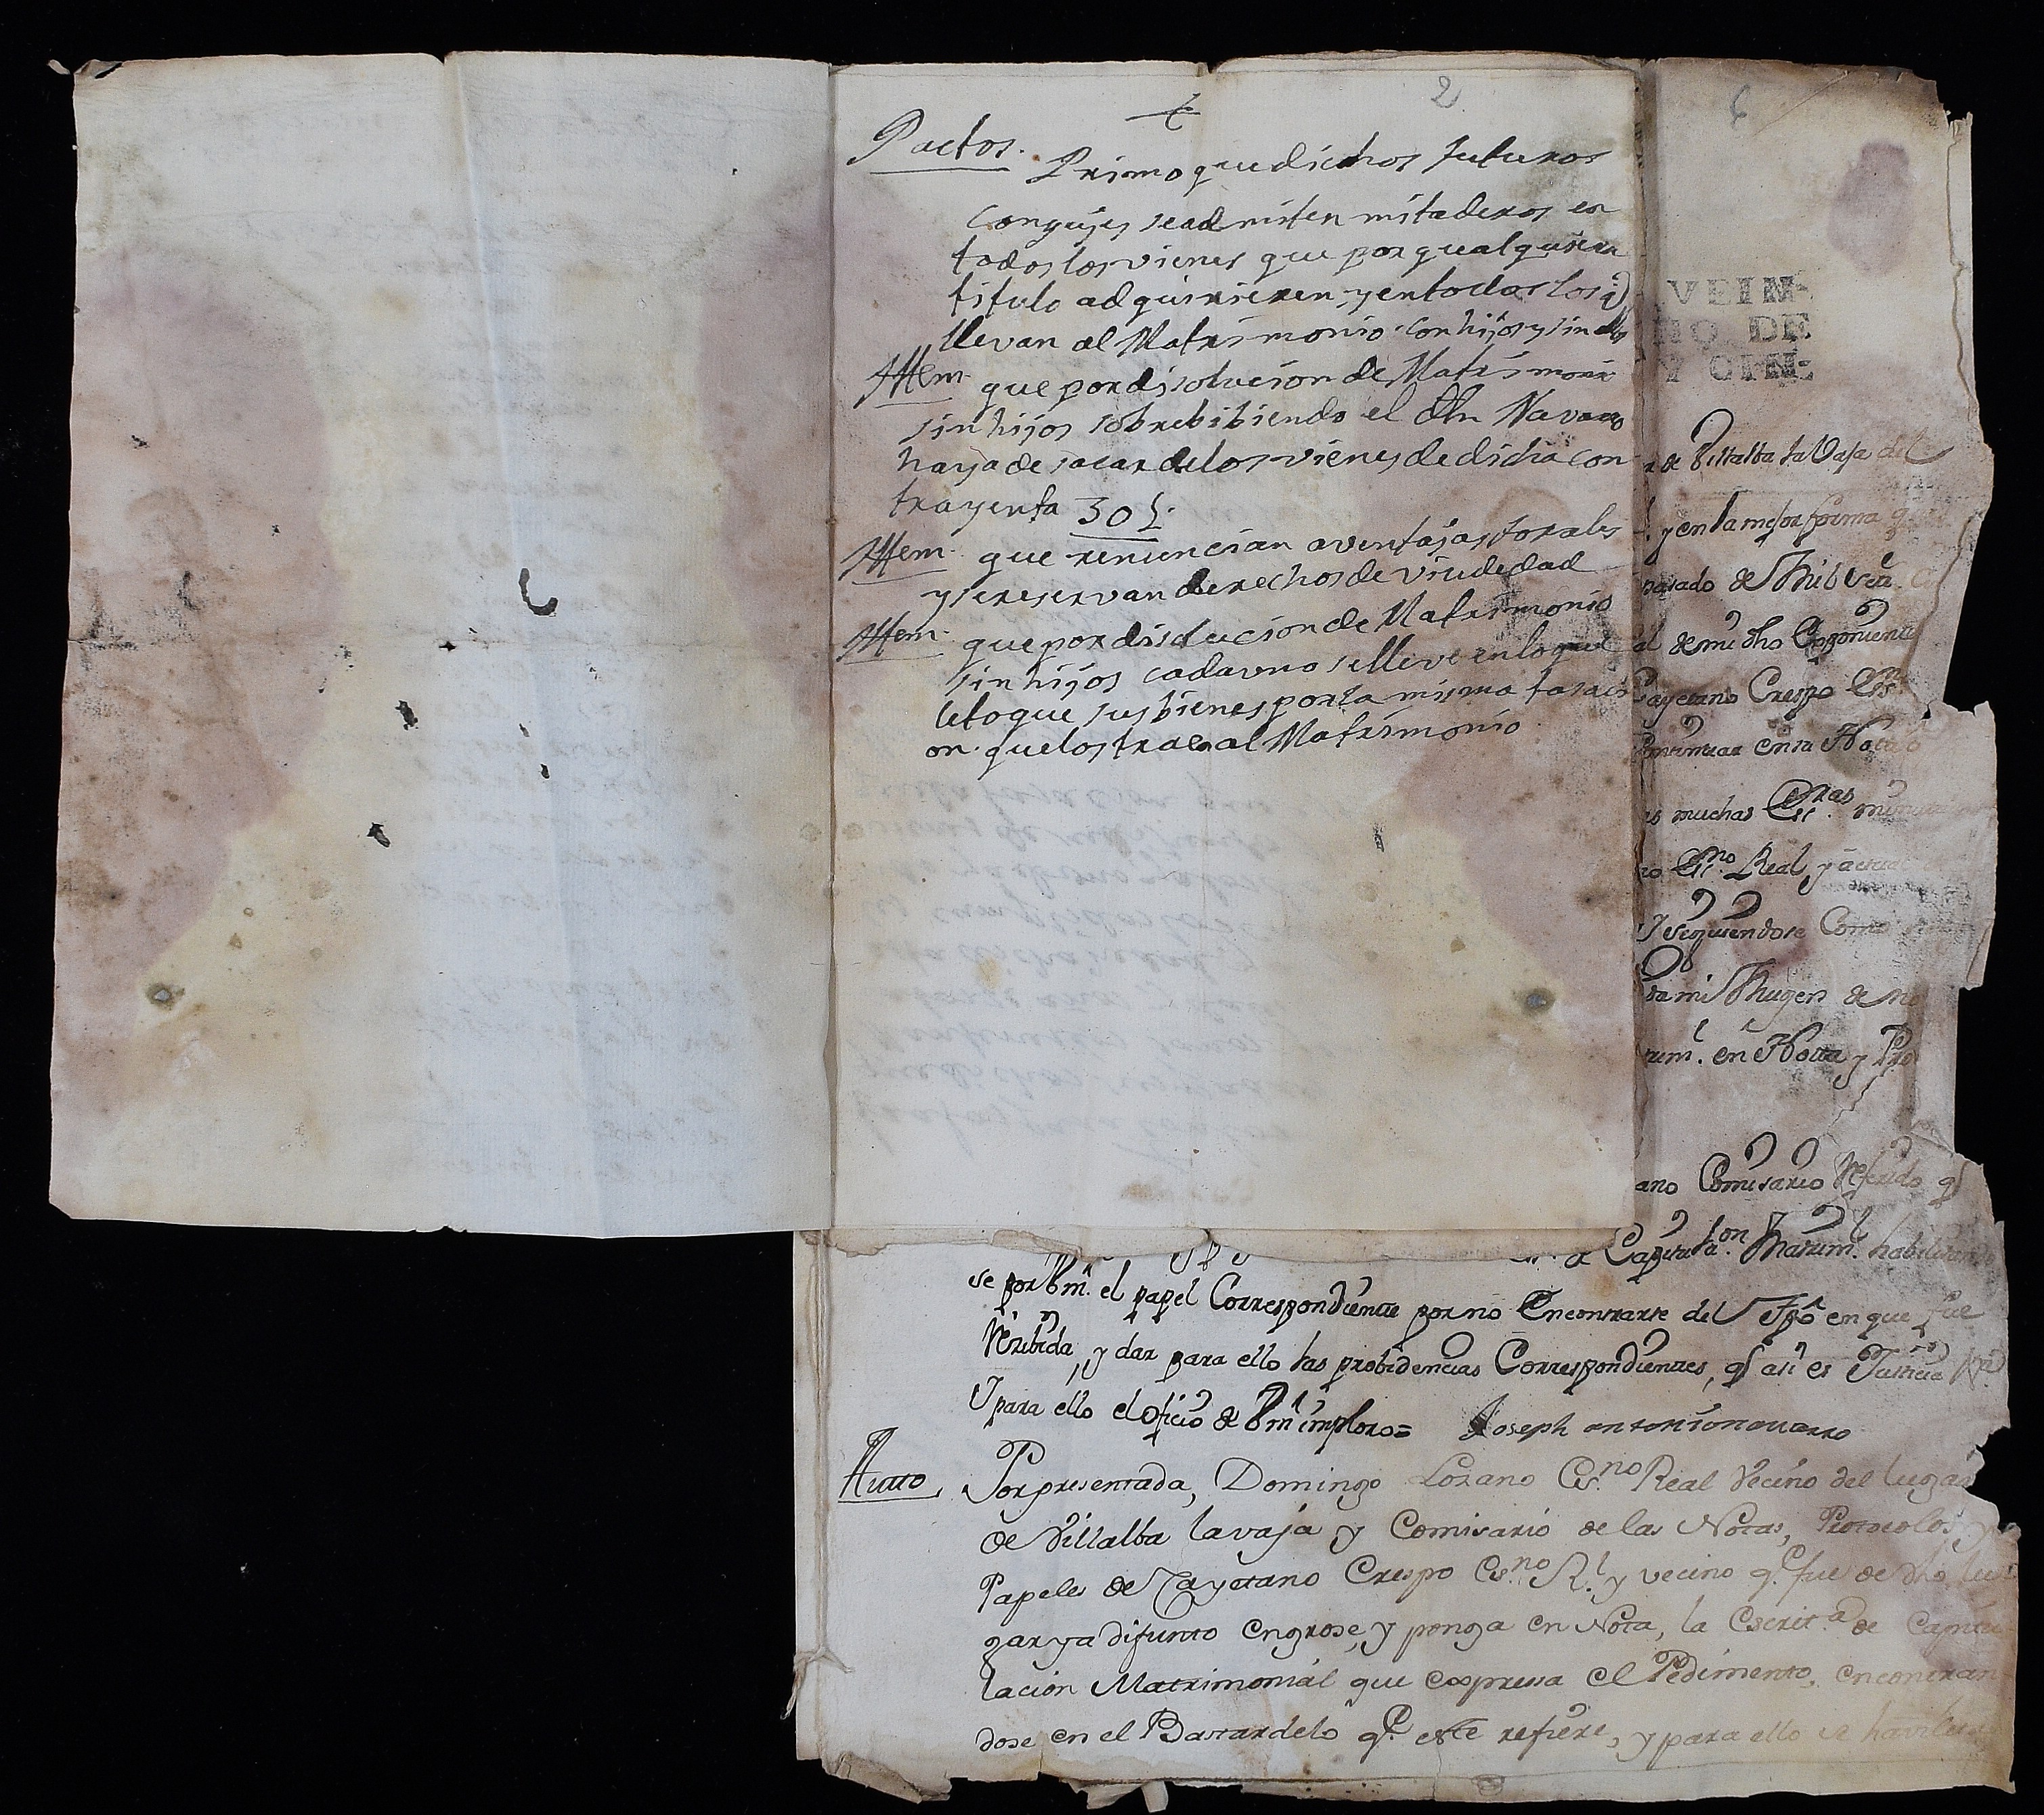 2
Pactos. Primo que dichos futuros
Conyujes se admiten mitaderos en
todos los vienes que por qualquiera
titulo adquirieren, y en todos los q
llevan al Matrimonio con hijos y sin ellos
Ittem que por disolucion de Matrimonio
sin hijos sobrebibiendo el dhn Navarro
haya de sacar de los vienes de dicha con
trayenta 30 L.
Ittem que renuncian aventajas forales
y se reservan derechos de viudedad
Ittem que por disolucion de Matrimonio
sin hijos cada uno se lleve en lo que
le toque sus bienes por la misma tasaci
on que los traen al Matrimonio
6
VEIN-
NO DE
Y CIN-
de Villalba la Vaja del
y en la mejor forma q
pasado de Mil
al de mi dho
Cayetano Crespo Essno
en su Nota
muchas Essras
Essno Real, y
siguiendose Como
mi Muger de
en Nota y
ano Comisario Referido q
Capitulaon Matriml habilitando
se por Vm. el papel Correspondiente por no Encontrarse del Tpo en que fue
Rezibida, y dar para ello las probidencias Correspondientes, q asi es Justicia
Y para ello el oficio de Vm imploro= Joseph antonio nauarro
Auto, Por presentada, Domingo Lozano Esno Real Vecino del lugar
de Villalba la vaja y Comisario de las Notas, Protocolos, y
Papeles de Cayetano Crespo Esno Rl. y vecino q. fue de dho lu
gar ya difunto engrose, y ponga en Nota, la Escrit.a de Capitu
lacion Matrimonial que expressa el Pedimento, encontran
dose en el Bastardelo q. este refiere, y para ello se havilita